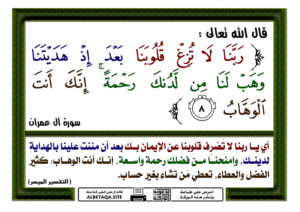 قال الله تعالى :
﴿ رَبَّنَا لَا تُزِغْ قُلُوبَنَا بَعْدَ إِذْ هَدَيْتَنَا
وَهَبْ لَنَا مِن لَّدُنكَ رَحْمَةً ۚ إِنَّكَ أَنتَ
الْوَهَّابُ ٨ ﴾
سورة آل عمران
أي يا ربنا لا تصرف قلوبنا عن الإيمان بك بعد أن مننت علينا بالهداية
لدينك، وامنحنا من فضلك رحمة واسعة، إنك أنت الوهاب: كثير
الفضل والعطاء، تعطي من تشاء بغير حساب.
(التفسير الميسر)
ALBETAQA.SITE